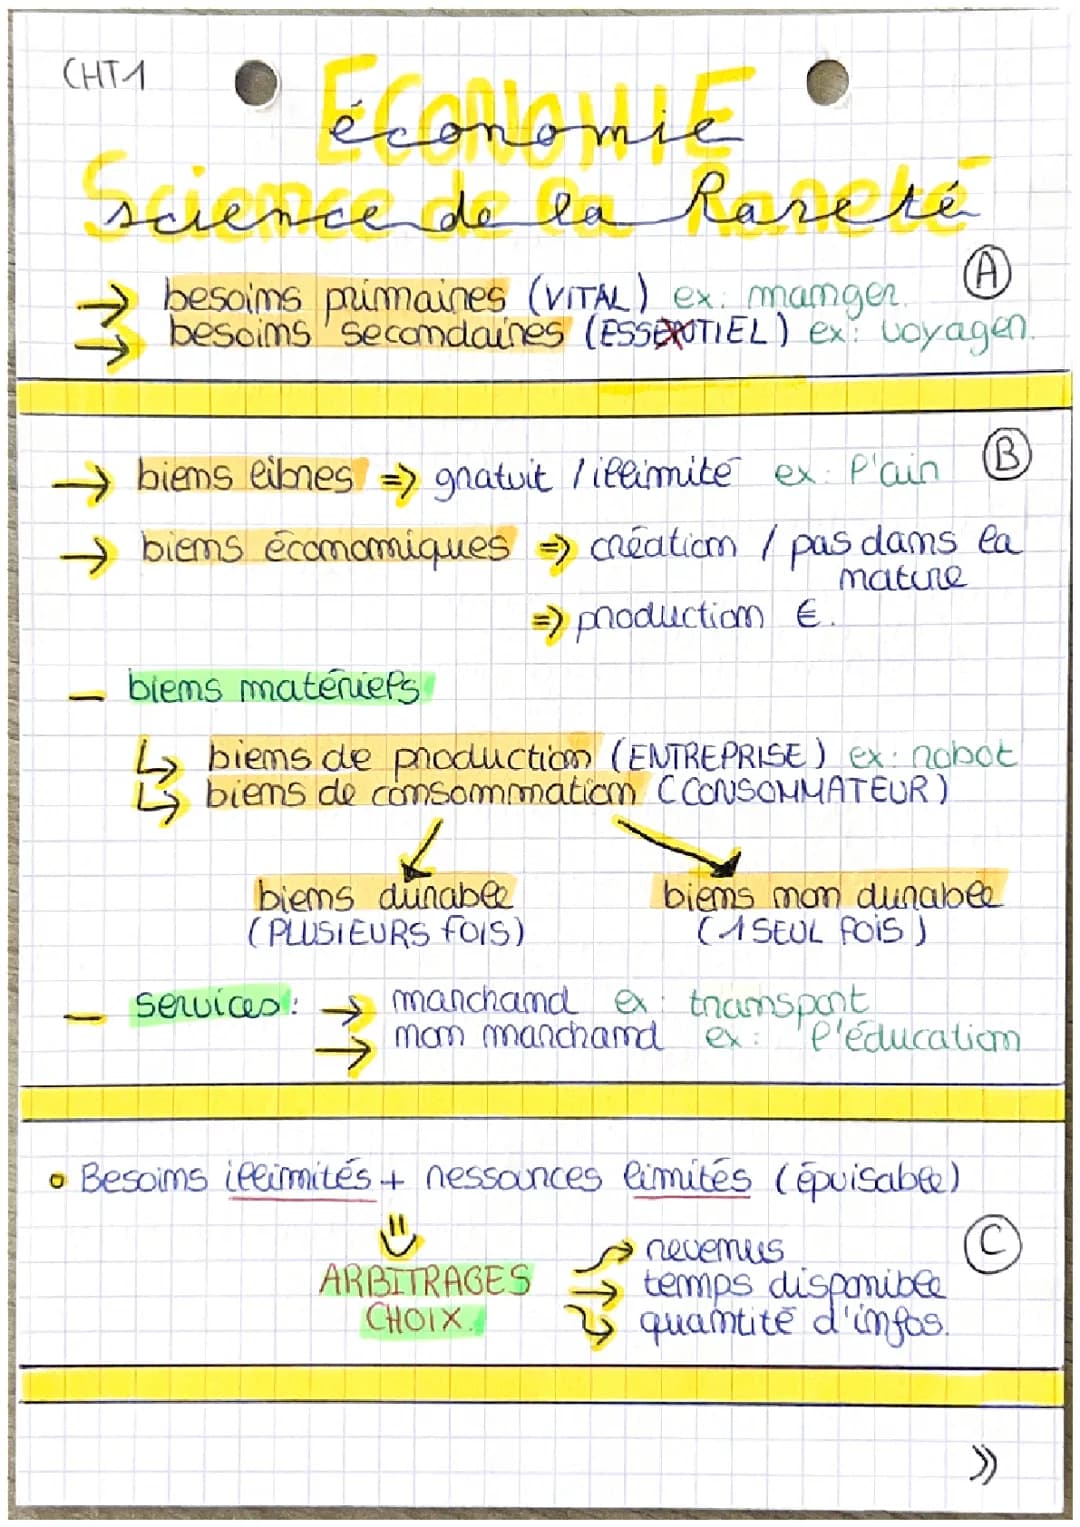 CHT1
ECONOMIE
économie
Science de la Rareté
science de la Rareté
A
→ besoins primaires (VITAL) ex: manger.
→ besoins secondaires (ESSENTIEL) ex: voyager.
B
→ biens libres => gratuit / illimité ex: l'air
→ biens économiques => création / pas dans la
nature
=> production €.
— biens matériels
↳ biens de production (ENTREPRISE) ex: robot
↳ biens de consommation (CONSOMMATEUR)
biens durable biens non durable
(PLUSIEURS FOIS) (1 SEUL FOIS)
— services: → marchand ex: transport
→ non marchand ex: l'éducation
• Besoins illimités + ressources limités (épuisable)
C
ARBITRAGES → revenus
CHOIX. → temps disponible
→ quantité d'infos.
»